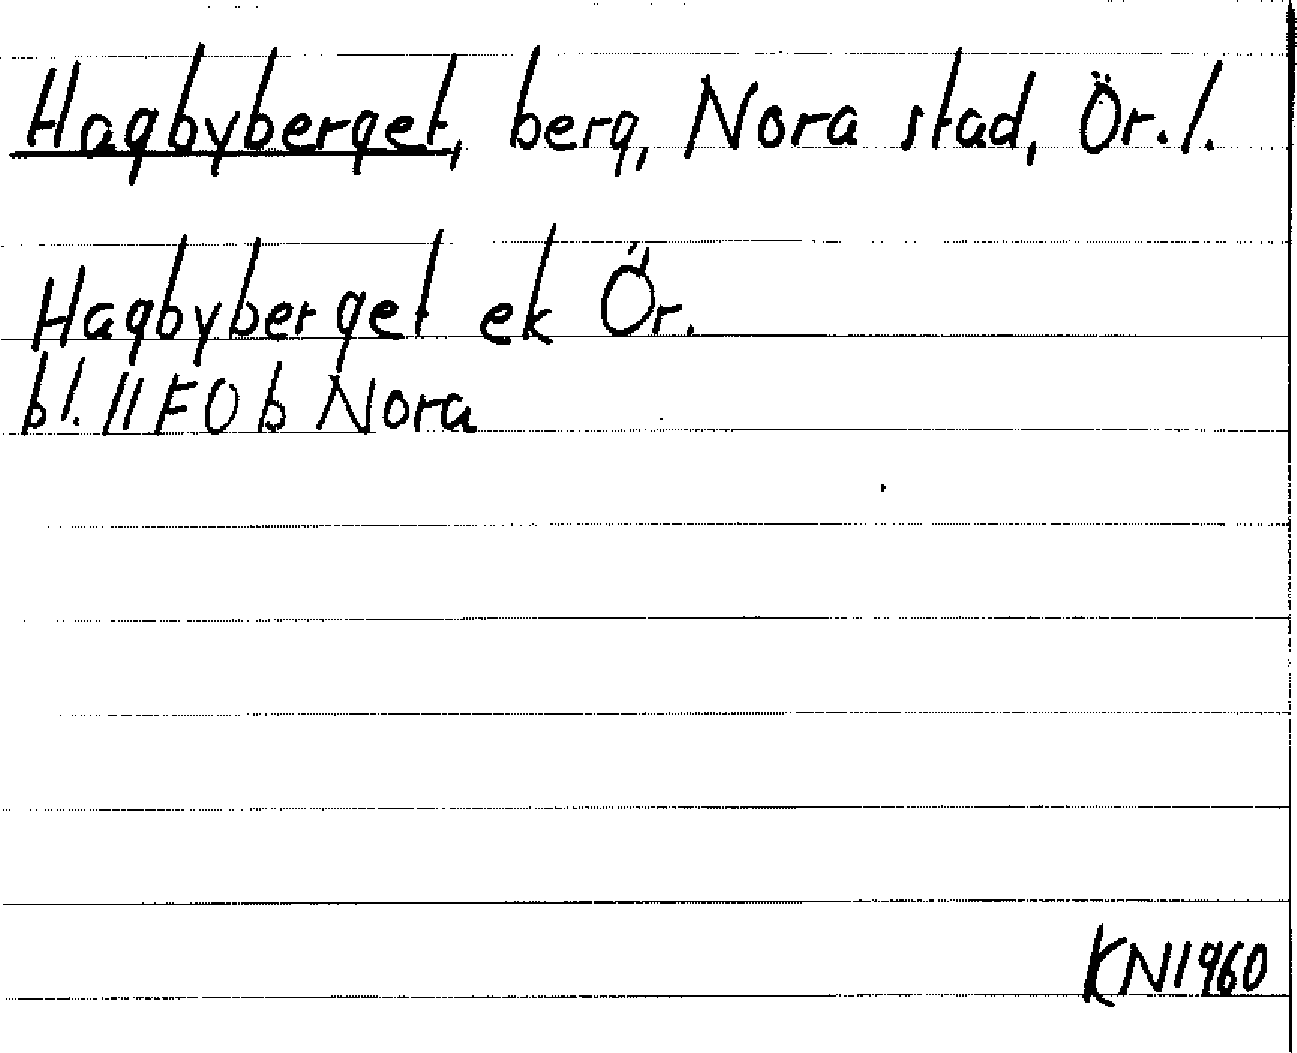 Hagbyberget, berg, Nora stad, Ör. l.
Hagbyberget ek Ör.
bl. 11 F 0 b Nora
KN 1960